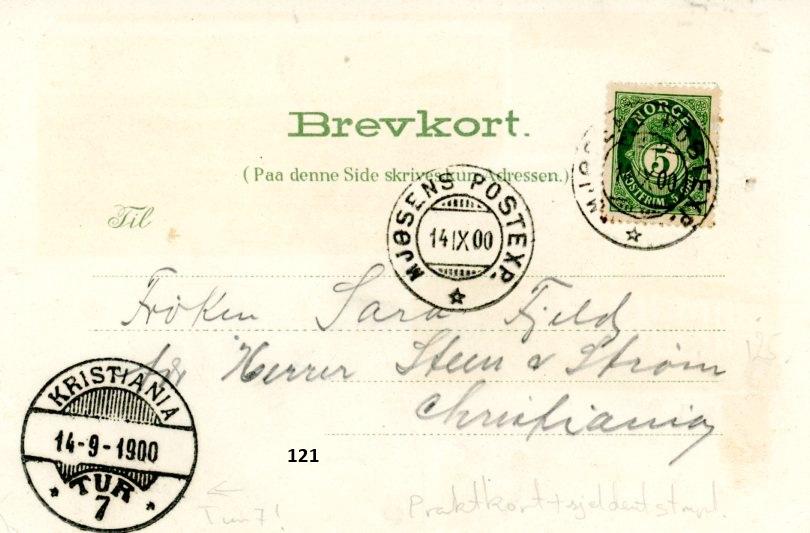 Brevkort.
(Paa denne Side skrives kun Adressen.)
NORGE
5
POSTFRIM. 5 ØRE
MJØSENS POSTEXP.
IX 00
Til
MJØSENS POSTEXP.
14 IX 00
Frøken Sara Fjeld
Herrer Steen & Strøm
Christiania
KRISTIANIA
14-9-1900
TUR
7
121
Tur 7!
Praktkort + sjeldent stmpl.